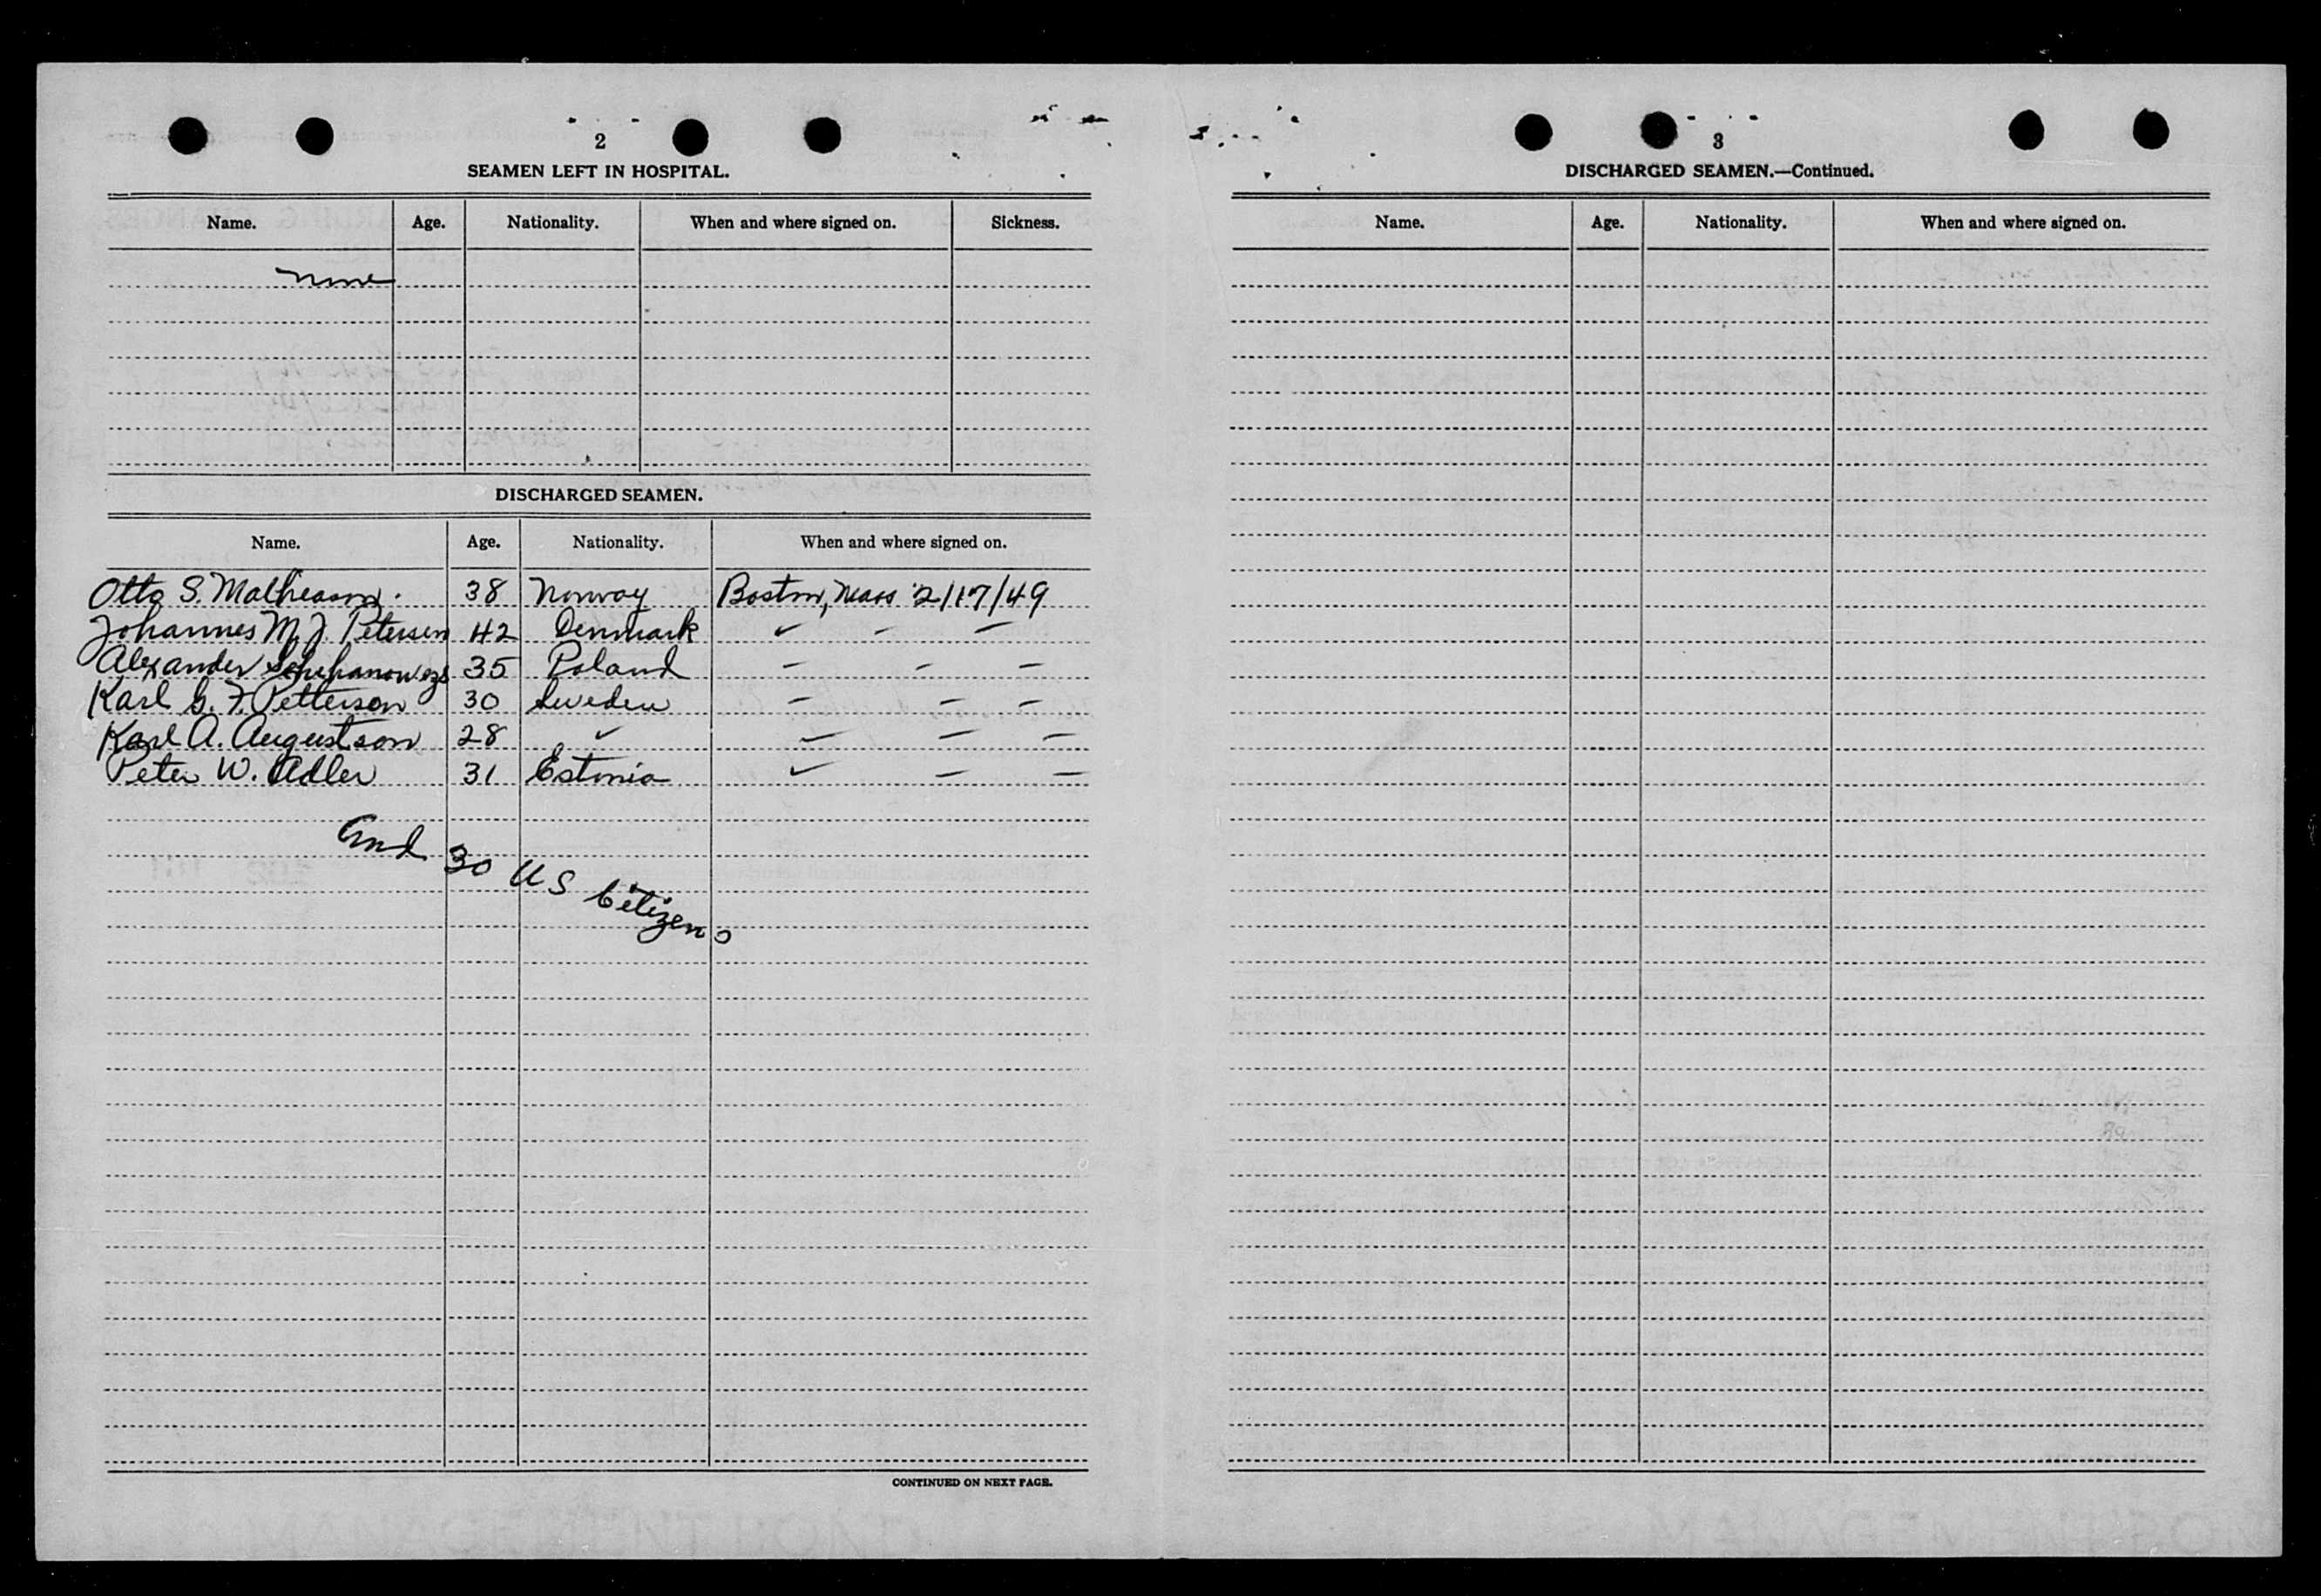 2
SEAMEN LEFT IN HOSPITAL.
Name. Age. Nationality. When and where signed on. Sickness.
None
DISCHARGED SEAMEN.
Name. Age. Nationality. When and where signed on.
Otto S. Matheason. 38 Norway Boston, Mass 2/17/49
Johannes M. J. Petersen 42 Denmark
Alexander 35 Poland
Karl G. F. Petterson 30 Sweden
Karl A. Augustson 28
Peter W. Adler 31 Estonia
And 30 US Citizens
CONTINUED ON NEXT PAGE.
3
DISCHARGED SEAMEN.—Continued.
Name. Age. Nationality. When and where signed on.